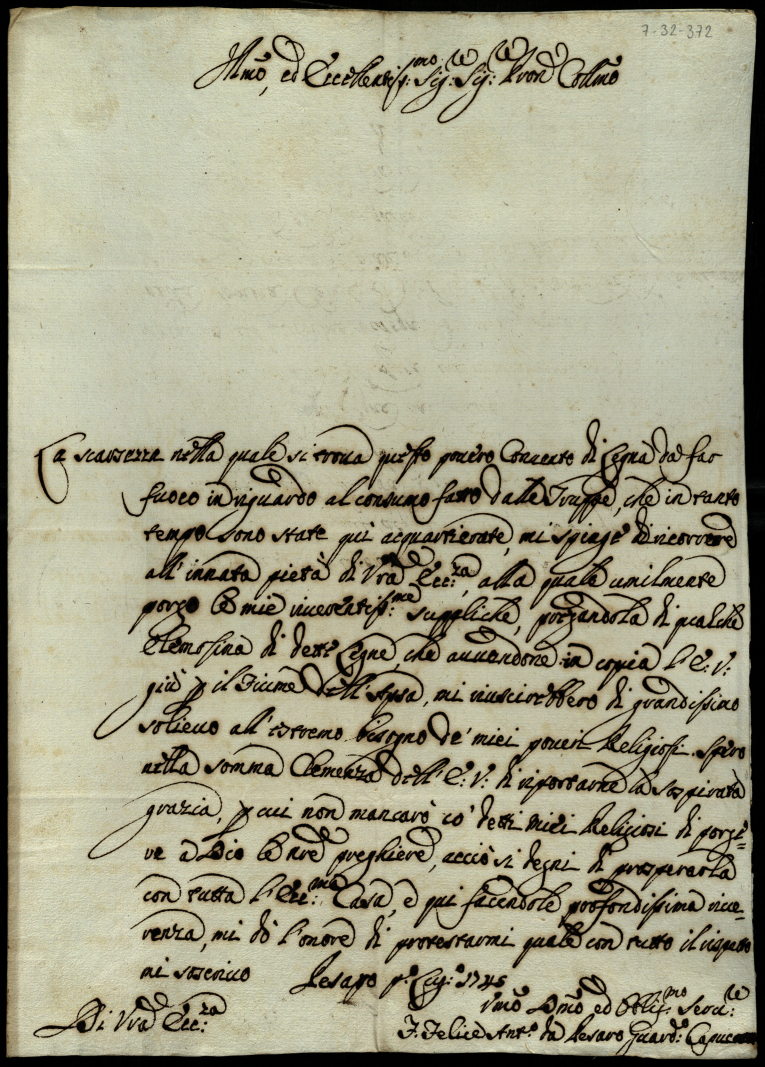 7-32-372
Illmo, ed Eccellentiss:mo Sig:re Sig:re Pron Collmo
La scarsezza nella quale si trova questo povero Convento di Legna da far
fuoco in riguardo al consumo fatto dalle Truppe, che in tanto
tempo sono state qui acquartierate, mi spinge di ricorrere
all'innata pietà di Vra Ecc:za, alla quale umilmente
porgo le mie riverentiss:me suppliche, pregandola di qualche
Elemosina di dette Legne, che avvendone in copia l'E: V:
giù p il Fiume dell'Apsa, mi riuscirebbero di grandissimo
solievo all'estremo bisogno de' miei poveri Religiosi. Spero
nella somma Clemenza dell'E: V: di riportarne la sospirata
grazia, p cui non mancarò co' detti miei Religiosi di porge=
re a Dio le nre preghiere, acciò si degni di prosperarla
con tutta l'Ecc:ma Casa, e qui facendole profondissima rive-
renza, mi dò l'onore di protestarmi quale con tutto il rispetto
mi soscrivo Pesaro p:o Lug:o 1745
Di Vra Ecc:za
Vmo Dmo ed Obllig:mo Serv:re
F. Felice Ant:o da Pesaro Guard:o